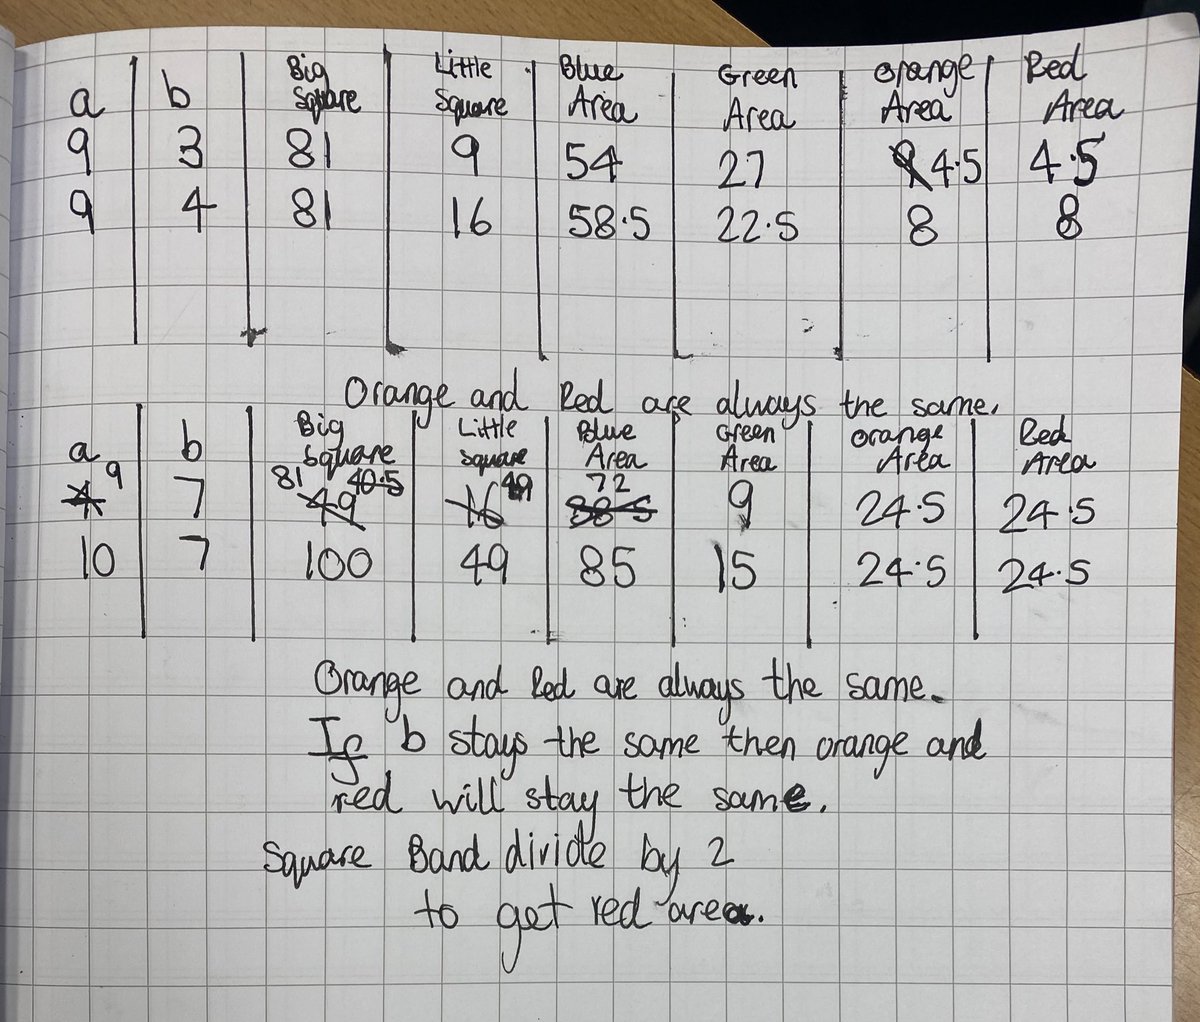 a b Big Square Little Square Blue Area Green Area Orange Area Red Area
9 3 81 9 54 27 4.5 4.5
9 4 81 16 58.5 22.5 8 8
Orange and Red are always the same.
a b Big Square Little Square Blue Area Green Area Orange Area Red Area
9 7 81 49 72 9 24.5 24.5
10 7 100 49 85 15 24.5 24.5
Orange and Red are always the same.
If b stays the same then orange and
red will stay the same.
Square B and divide by 2
to get red area.